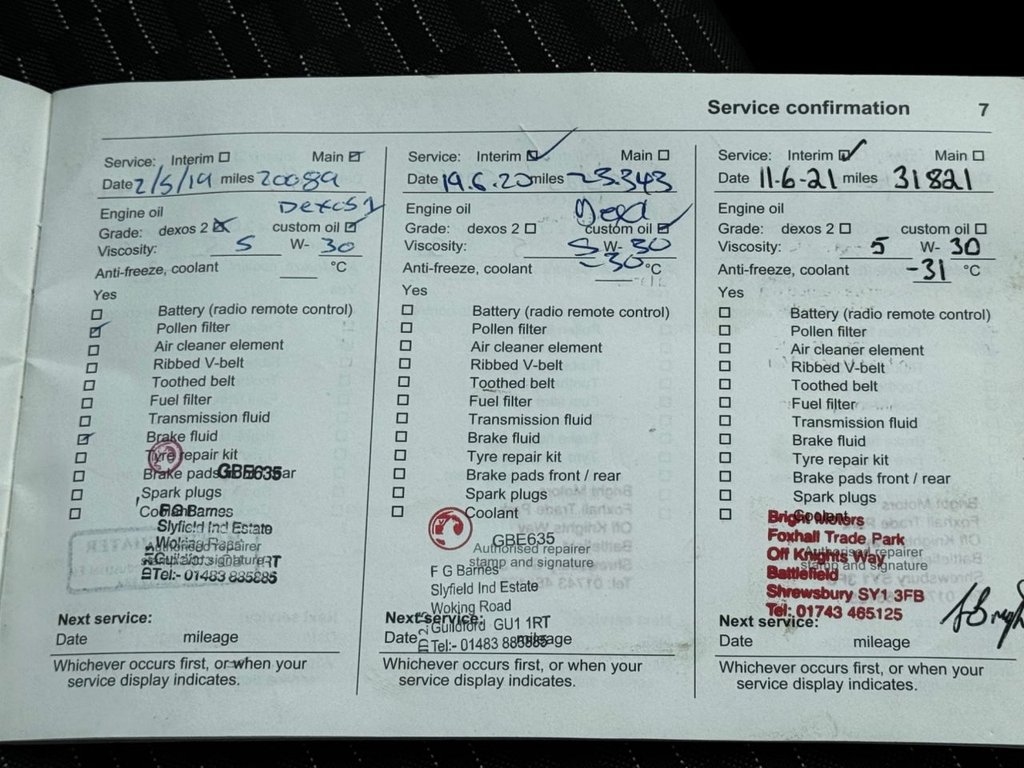 Service confirmation 7
Service: Interim Main
Date 2/5/19 miles 20089
Dexos 1
Engine oil
Grade: dexos 2 custom oil
Viscosity: 5 W- 30
Anti-freeze, coolant °C
Yes
Battery (radio remote control)
Pollen filter
Air cleaner element
Ribbed V-belt
Toothed belt
Fuel filter
Transmission fluid
Brake fluid
Tyre repair kit
Brake pads GBE635
Spark plugs
F G Barnes
Slyfield Ind Estate
Woking Road
Authorised repairer
stamp and signature
Tel:- 01483 835885
Next service:
Date mileage
Whichever occurs first, or when your
service display indicates.
Service: Interim Main
Date 19.6.20 miles 23.343
Engine oil
Grade: dexos 2 custom oil
Viscosity: 5 W- 30
Anti-freeze, coolant -30 °C
Yes
Battery (radio remote control)
Pollen filter
Air cleaner element
Ribbed V-belt
Toothed belt
Fuel filter
Transmission fluid
Brake fluid
Tyre repair kit
Brake pads front / rear
Spark plugs
Coolant
GBE635
Authorised repairer
stamp and signature
F G Barnes
Slyfield Ind Estate
Woking Road
Guildford GU1 1RT
Tel:- 01483
Next service:
Date mileage
Whichever occurs first, or when your
service display indicates.
Service: Interim Main
Date 11-6-21 miles 31821
Engine oil
Grade: dexos 2 custom oil
Viscosity: 5 W- 30
Anti-freeze, coolant -31 °C
Yes
Battery (radio remote control)
Pollen filter
Air cleaner element
Ribbed V-belt
Toothed belt
Fuel filter
Transmission fluid
Brake fluid
Tyre repair kit
Brake pads front / rear
Spark plugs
Coolant
Bright Motors
Foxhall Trade Park
Off Knights Way
Authorised repairer
stamp and signature
Battlefield
Shrewsbury SY1 3FB
Tel: 01743 465125
Next service:
Date mileage
Whichever occurs first, or when your
service display indicates.